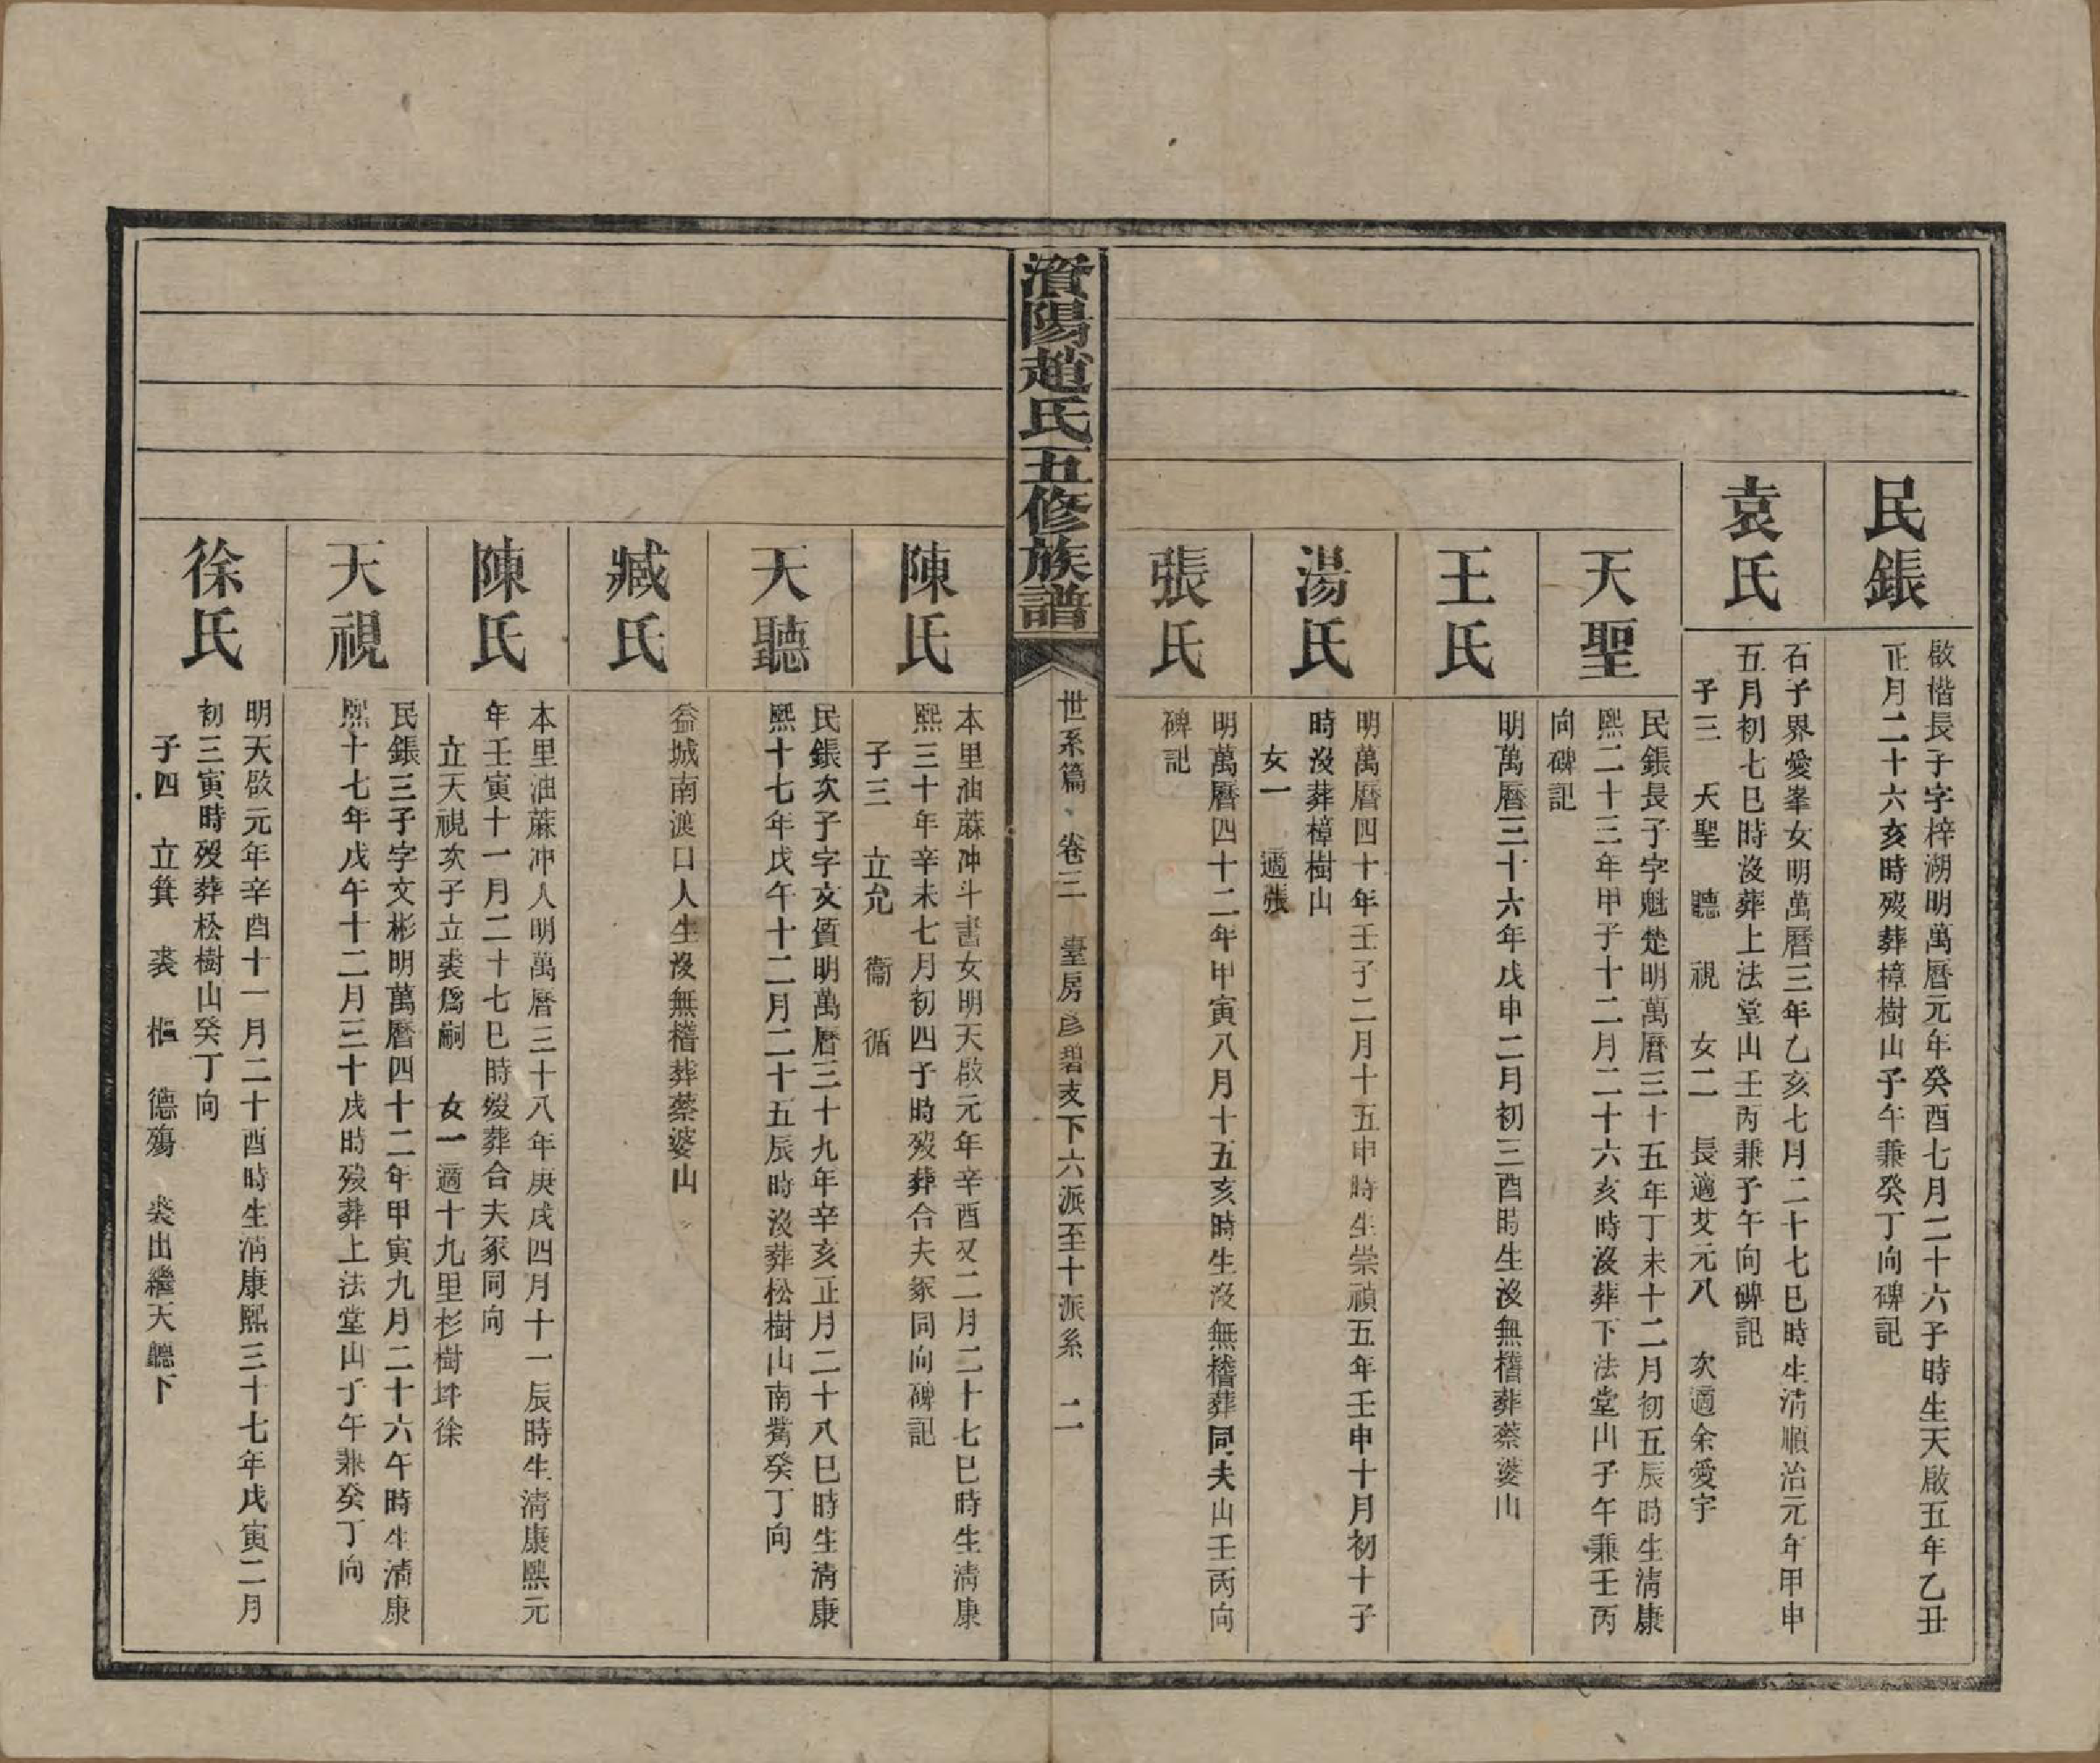 民鋹
啟楷長子字梓湖明萬曆元年癸酉七月二十六子時生天啟五年乙丑
正月二十六亥時歿葬樟樹山子午兼癸丁向碑記
袁氏
石子界愛峯女明萬曆三年乙亥七月二十七巳時生清順治元年甲申
五月初七巳時沒葬上法堂山壬丙兼子午向碑記
子三 天聖 聽 視 女二 長適艾元八 次適余愛宇
天聖
民鋹長子字魁楚明萬曆三十五年丁未十二月初五辰時生清康
熙二十三年甲子十二月二十六亥時沒葬下法堂山子午兼壬丙
向碑記
王氏
明萬曆三十六年戊申二月初三酉時生沒無稽葬蔡婆山
湯氏
明萬曆四十年壬子二月十五申時生崇禎五年壬申十月初十子
時沒葬樟樹山
女一 適張
張氏
明萬曆四十二年甲寅八月十五亥時生沒無稽葬同夫山壬丙向
碑記
濱陽趙氏五修族譜
世系篇 卷三 臺房彦碧支下六派至十派系 二
陳氏
本里油蔴冲斗書女明天啟元年辛酉又二月二十七巳時生清康
熙三十年辛未七月初四子時歿葬合夫冢同向碑記
子三 立允 衞 循
天聽
民鋹次子字文質明萬曆三十九年辛亥正月二十八巳時生清康
熙十七年戊午十二月二十五辰時沒葬松樹山南嘴癸丁向
臧氏
益城南渡口人生沒無稽葬蔡婆山
陳氏
本里油蔴冲人明萬曆三十八年庚戌四月十一辰時生清康熙元
年壬寅十一月二十七巳時歿葬合夫冢同向
立天視次子立裘爲嗣 女一適十九里杉樹坪徐
天視
民鋹三子字文彬明萬曆四十二年甲寅九月二十六午時生清康
熙十七年戊午十二月三十戌時歿葬上法堂山子午兼癸丁向
徐氏
明天啟元年辛酉十一月二十酉時生清康熙三十七年戊寅二月
初三寅時歿葬松樹山癸丁向
子四 立箕 裘 樞 德殤 裘出繼天聽下